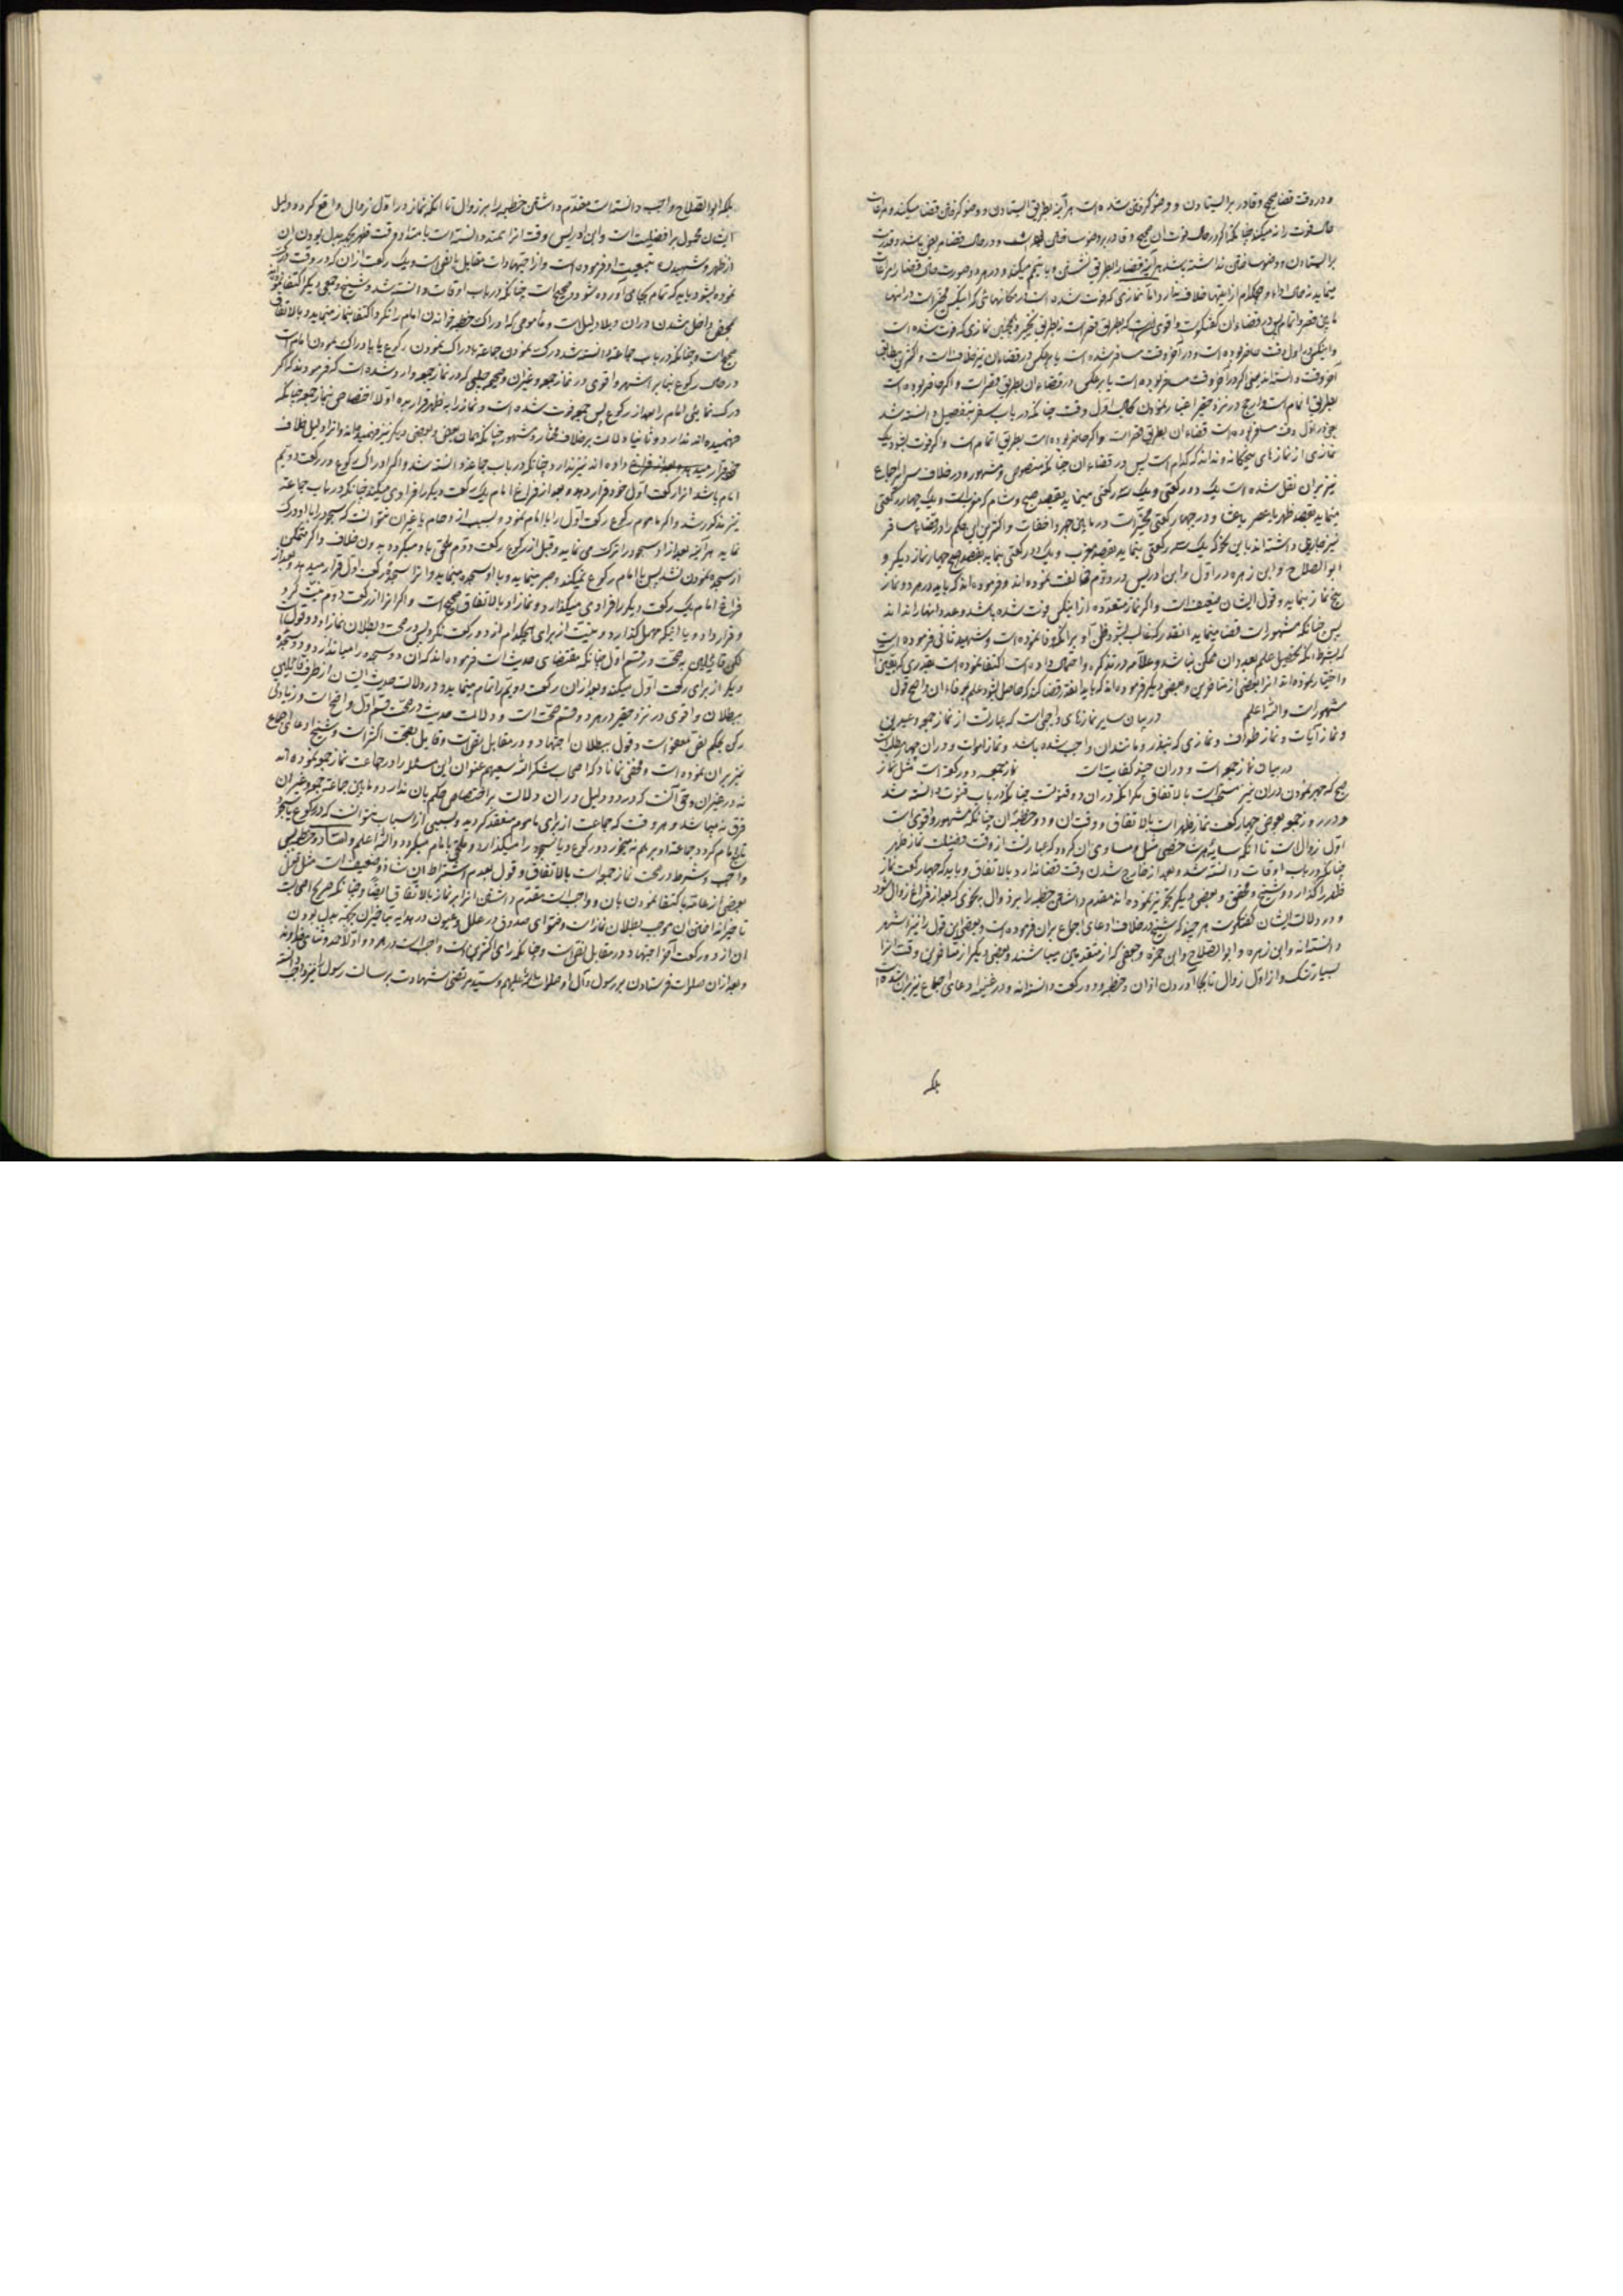 و در وقت قضا صحیح و قادر بر ایستادن و وضو کردن شده است هر آینه بطریق ایستادن و وضو کردن قضا میکند و مراعات
حال فوت را نمیکند چنانکه اگر در حال فوت آن صحیح و قادر بر وضو ساختن باشد و در حال قضا مریض باشد و قدرت
بر ایستادن و وضو ساختن نداشته باشد هر آینه قضا را بطریق نشستن و یا تیمم میکند و در هر دو صورت حال قضا را مراعات
مینماید نه حال ادا و هیچکدام از اینها خلاف ندارد اما نمازی که فوت شده است در مکانهائی که اینکس مخیر است در آنها
ما بین قصر و اتمام پس در قضاء آن گفتگوست و اقوی آنست که بطریق قصر است نه بطریق تخییر و همچنین نمازی که فوت شده است
و اینکس در اول وقت حاضر بوده است و در آخر وقت مسافر شده است یا برعکس در قضاء آن نیز خلاف است و اکثر بر مطابق
آخر وقت دانسته‌اند یعنی اگر در آخر وقت مسافر بوده است یا برعکس در قضاء آن بطریق قصر است و اگر حاضر بوده است
بطریق اتمام است و ارجح در نزد حقیر اعتبار نمودن حال اول وقت چنانکه در باب سفر بتفصیل دانسته شد
یعنی در اول وقت مسافر بوده است قضاء آن بطریق قصر است و اگر حاضر بوده است بطریق اتمام است و اگر فوت بشود یک
نمازی از نمازهای پنجگانه و نداند که کدام است پس در قضاء آن چنانکه منصوص و مشهور و در خلاف و سرائر اجماع
نیز بر آن نقل شده است یک دو رکعتی و یک سه رکعتی مینماید بقصد صبح و شام که مغرب است و یک چهار رکعتی
مینماید بقصد ظهر یا عصر یا عشا و در چهار رکعتی مخیر است در ما بین جهر و اخفات و اکثر این حکم را در قضاء مسافر
نیز جاری داشته‌اند باین نحو که یک سه رکعتی بنماید بقصد مغرب و یک دو رکعتی بنماید بقصد صبح و چهار نماز دیگر و
ابو الصلاح و ابن زهره در اول و ابن ادریس در دوم مخالفت نموده‌اند و فرموده‌اند که باید در هر دو نماز
پنج نماز بنماید و قول ایشان ضعیف است و اگر نماز متعدده از اینکس فوت شده باشد و عدد آنها را نداند
پس چنانکه مشهور است قضا مینماید آنقدر که غالب بشود ظن او بر آنکه وفا نموده است و شهید ثانی فرموده است
که بشرط آنکه تحصیل علم بعدد آن ممکن نباشد و علامه در تذکره و احتمال داده است اکتفا نموده است بقدری که یقین
و اختیار نموده‌اند آنرا بعضی از متاخرین و بعضی دیگر فرموده‌اند که باید آنقدر قضا کند که حاصل بشود علم بوفاء آن و اصح قول
مشهور است والله اعلم در بیان سایر نمازهای واجبی است که عبارتست از نماز جمعه و عیدین
و نماز آیات و نماز طواف و نمازی که بنذر و مانند آن واجب شده باشد و نماز اموات و در آن چهار مطلبست
در بیان نماز جمعه است و در آن چند کفایت است نماز جمعه دو رکعت است مثل نماز
صبح که جهر نمودن در آن نیز مستحب است بالاتفاق مگر آنکه در آن دو قنوتست چنانکه در باب قنوت دانسته شد
و در روز جمعه بعوض چهار رکعت نماز ظهر است بالاتفاق و وقت آن و دو خطبه آن چنانکه مشهور و اقوی است
اول زوال است تا آنکه سایه هر شخصی مثل و مساوی آن گردد که عبارتست از وقت فضیلت نماز ظهر
چنانکه در باب اوقات دانسته شد و بعد از خارج شدن وقت قضا ندارد بالاتفاق و باید که چهار رکعت نماز
ظهر را گذارد و شیخ و محقق و بعضی دیگر تجویز نموده‌اند مقدم داشتن خطبه را بر زوال بنحوی که بعد از فراغ زوال شود
و در دلالت ایشان گفتگوست هر چند که شیخ در خلاف ادعای اجماع بر آن فرموده است و بعضی این قول را نیز اشهر
دانسته‌اند و ابن زهره و ابو الصلاح و ابن حمزه و جمعی که از متقدمین میباشند و بعضی دیگر از متاخرین وقت آنرا
بسیار تنک و از اول زوال تا بجا آوردن اذان و خطبه و دو رکعت دانسته‌اند و در غنیه ادعای اجماع نیز بر آن شده است
بلکه
بلکه ابو الصلاح واجب دانسته است مقدم داشتن خطبه را بر زوال تا آنکه نماز در اول زوال واقع گردد و دلیل
ایشان محمول بر افضلیت است و ابن ادریس وقت آنرا ممتد دانسته است بامتداد وقت ظهر بجهة بدل بودن آن
از ظهر و شهیدان تبعیت او فرموده است و آن اجتهاد است مقابل با نص است و یک رکعت از آن که در وقت درک
نموده بشود باید که تمام بجا می‌آورده شود و صحیح است چنانکه در باب اوقات دانسته شد و شیخ و جمعی دیگر اکتفا نموده‌اند
بمحض داخل شدن در آن و بلا دلیل است و مأمومی که ادراک خطبه خواندن امام را نکرد اکتفا بنماز مینماید و بالاتفاق
صحیح است و چنانکه در باب جماعة دانسته شد درک نمودن جماعة بادراک نمودن رکوع یا بادراک نمودن امام است
در حال رکوع بنا بر اشهر و اقوی در نماز جمعه و غیر آن و صحیحه حلبی که در نماز جمعه وارد شده است که فرموده‌اند که اگر
درک نمائی امام را بعد از رکوع پس جمعه فوت شده است و نماز را به ظهر قرار بده اولا اختصاص بنماز جمعه چنانکه
فهمیده‌اند ندارد و ثانیا دلالت بر خلاف مختار و مشهور چنانکه همان بعض و بعضی دیگر نیز فهمیده‌اند و آنرا دلیل خلاف
خود قرار داده‌اند نیز ندارد چنانکه در باب جماعة دانسته شد و اگر ادراک رکوع در رکعت دویم
امام باشد آنرا رکعت اول خود قرار دهد و بعد از فراغ امام یک رکعت دیگر را فرادی میکند چنانکه در باب جماعة
نیز مذکور شد و اگر ماموم رکوع رکعت اول را با امام نمود و بسبب ازدحام یا غیر آن نتوانست که سجود را با او درک
نماید هر آینه بعد از او سجود را درک می‌نماید و قبل از رکوع رکعت دوم ملحق باو میگردد بدون خلاف و اگر متمکن
از سجده نمودن نشد پس با امام رکوع نمیکند و صبر مینماید و با او سجده مینماید و آنرا سجده رکعت اول قرار میدهد و بعد از
فراغ امام یک رکعت دیگر را فرادی میگذارد و نماز او بالاتفاق صحیح است و اگر آنرا از رکعت دوم نیت کرد
و قرار داد و یا اینکه مهمل گذارد و نیت از برای هیچکدام از دو رکعت نکرد پس در صحت و بطلان نماز او دو قول است
لکن قایلین به صحت در قسم اول چنانکه مقتضای حدیث است فرموده‌اند که آن دو سجده را میاندازد و دو سجده
دیگر از برای رکعت اول میکند و بعد از آن رکعت دویم را تمام مینماید و در دلالت حدیث ایشان از طرف قایلین
ببطلان و اقوی در نزد حقیر در هر دو قسم صحت است و دلالت حدیث در صحت قسم اول واضح است و زیادتی
رکن بحکم نص معفو است و قول ببطلان اجتهاد در مقابل نص است و قایل بصحت اکثر است و شیخ ادعای اجماع
نیز بر آن نموده است و مخفی نماناد که اصحاب شکر الله سعیهم عنوان این مسئله را در جماعت نماز جمعه نموده‌اند
نه در غیر آن و حق آنست که در دو دلیل در آن دلالت بر اختصاص حکم بآن ندارد و ما بین جماعة جمعه و غیر آن
فرق نه میباشد و هر وقت که جماعت از برای ماموم منعقد گردید و بسببی از اسباب نتوانست که در رکوع یا سجود
تابع امام گردد جماعة او بر هم نمیخورد و رکوع و یا سجود را میگذارد و ملحق با امام میگردد والله اعلم و اما دو خطبه پس
واجب و شروط در صحت نماز جمعه است بالاتفاق و قول بعدم اشتراط آن شاذ و ضعیف است مثل قول
بعضی از عامة باکتفا نمودن بآن و واجب است مقدم داشتن آنرا بر نماز بالاتفاق ایضا و چنانکه صریح اصحابست
تاخیر انداختن آن موجب بطلان نماز است و فتوای صدوق در علل و عیون و در هدایه بتاخیر آن بجهة بدل بودن
آن از دو رکعت آخر اجتهاد در مقابل نص است و چنانکه رای اکثر است واجب است در هر دو اولا حمد و ثنای خداوند
و بعد از آن صلوات فرستادن بر رسول و آل او صلوات الله علیهم و سید مرتضی شهادت برسالت رسول را نیز واجب دانسته